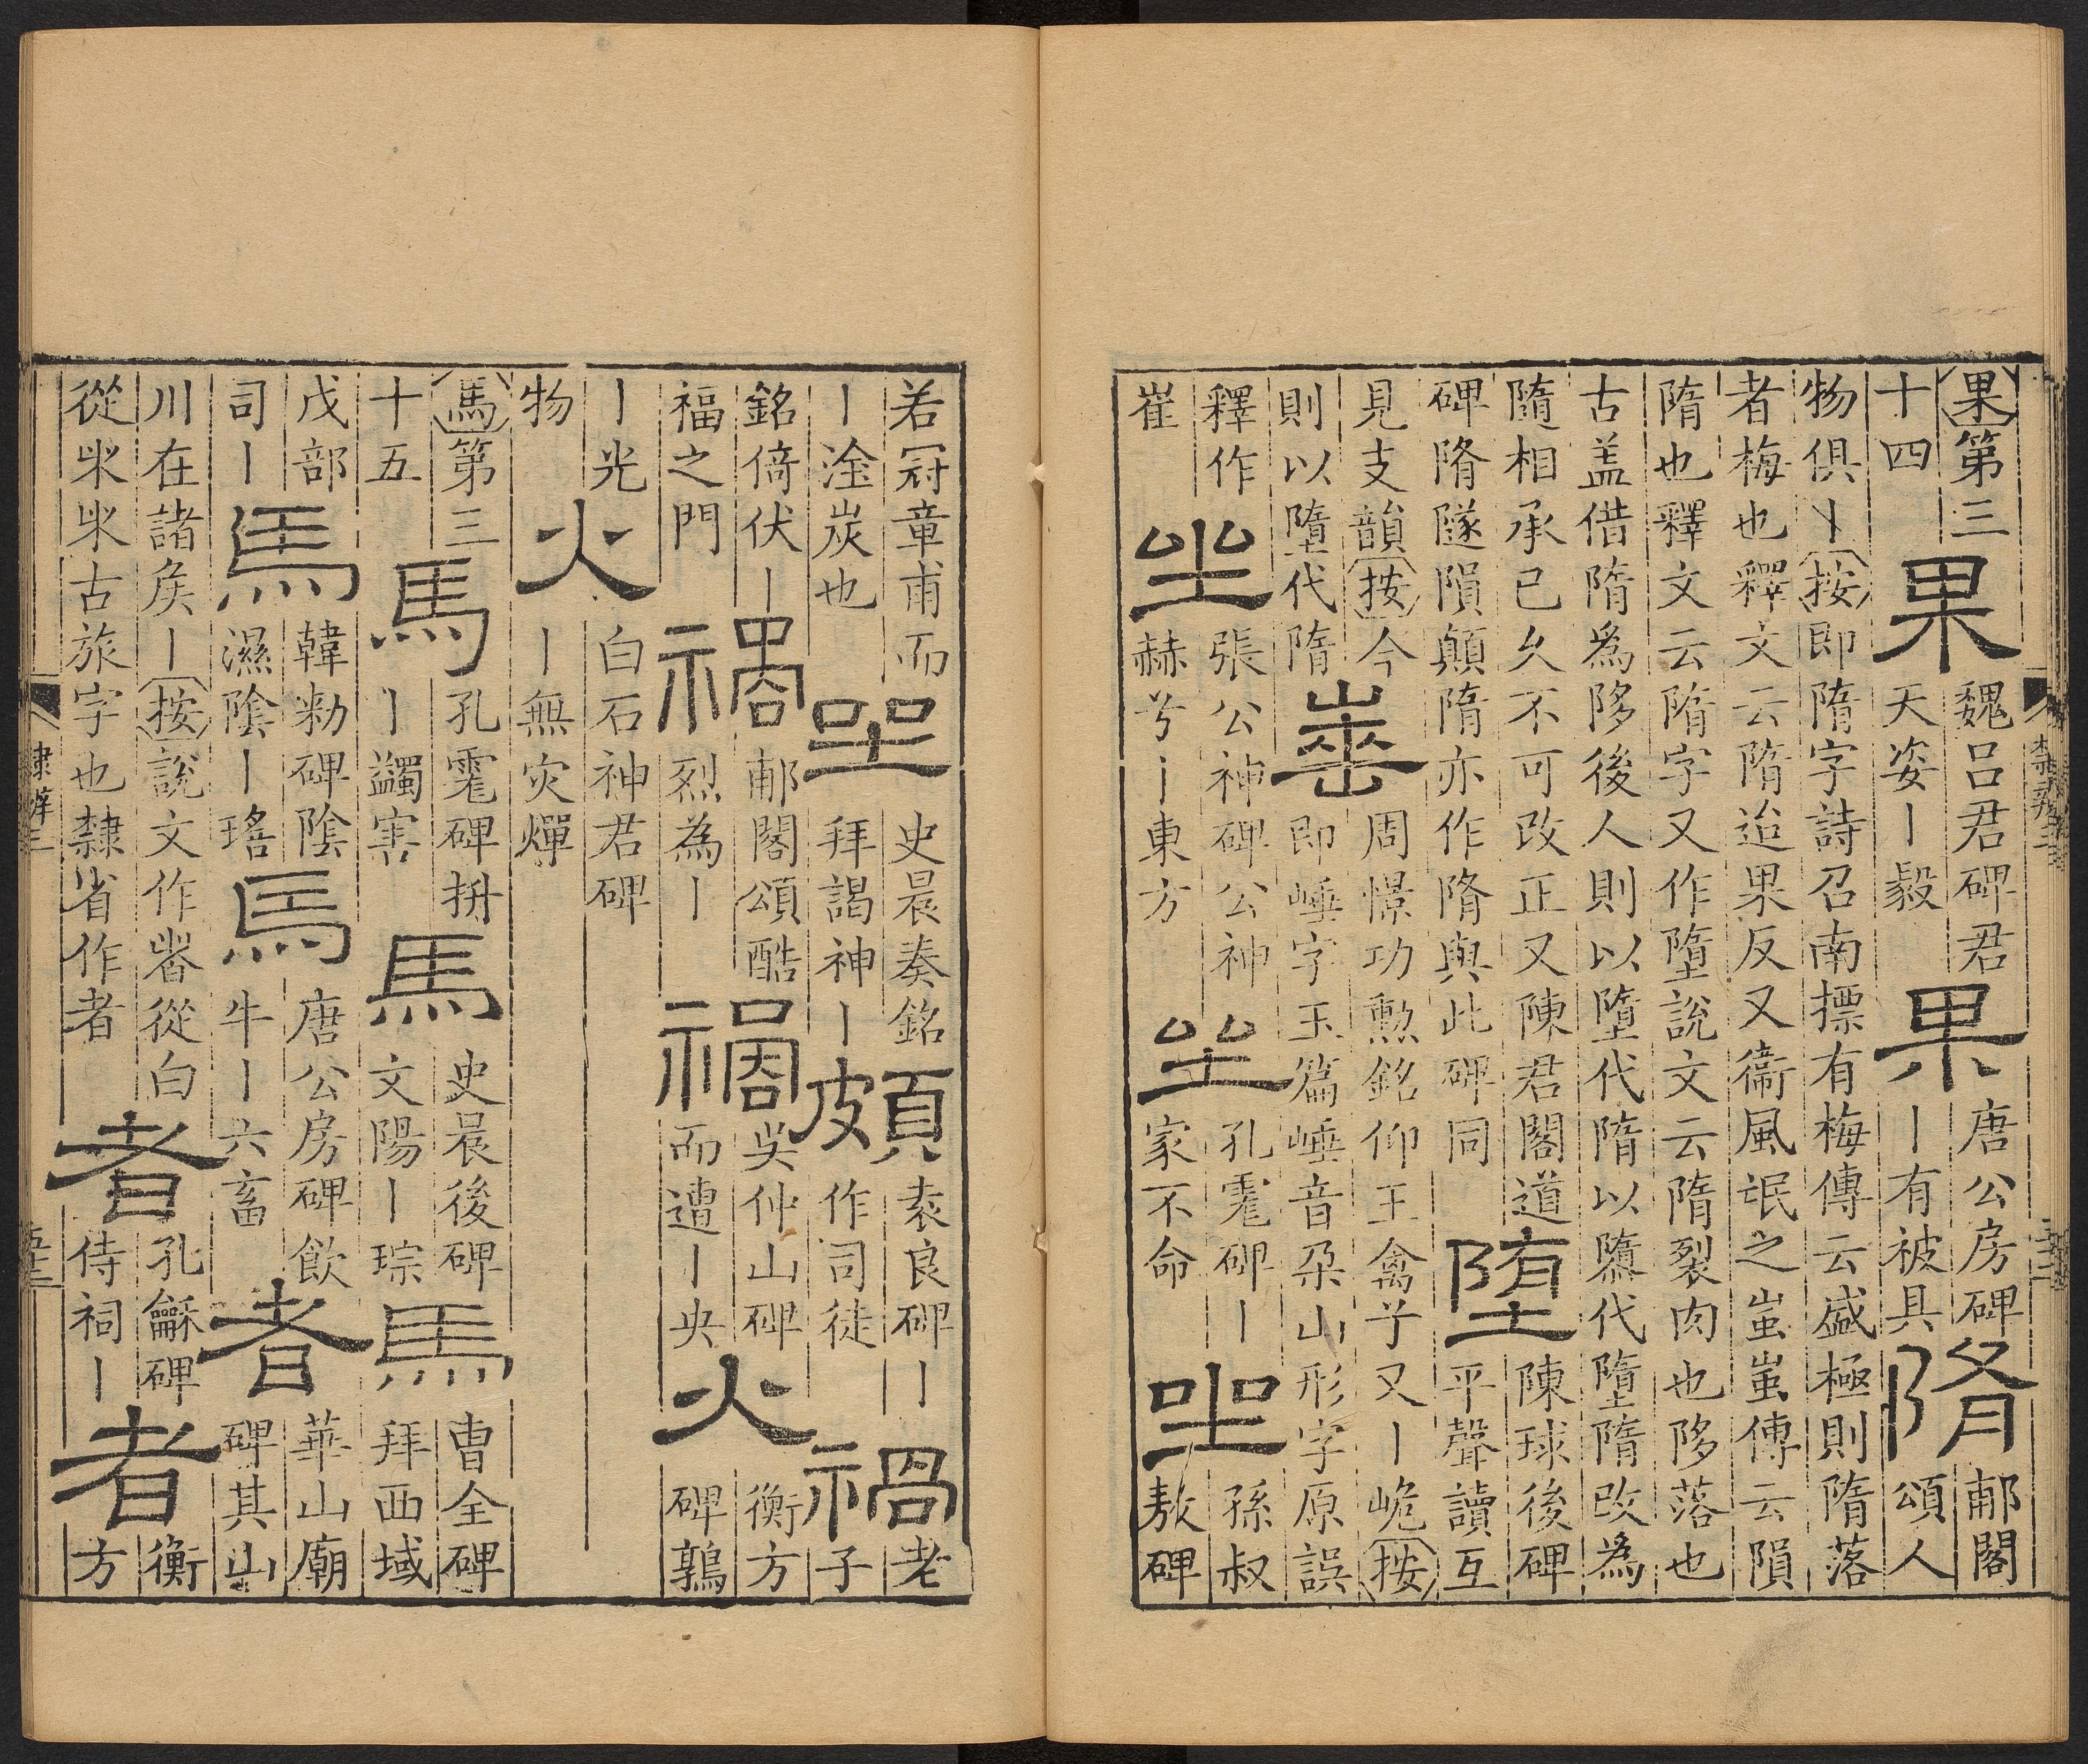 果第三
十四
果
魏呂君碑君
天姿丨毅
果
唐公房碑
丨有被具
隋
郙閣
頌人
物俱丨按即隋字詩召南摽有梅傳云盛極則隋落
者梅也釋文云隋迨果反又衞風氓之蚩蚩傳云隕
隋也釋文云隋字又作墮說文云隋裂肉也陊落也
古盖借隋爲陊後人則以墮代隋以隳代墮隋改爲
隨相承已久不可改正又陳君閣道
碑隋隧隕顛隋亦作隋與此碑同
堕
陳球後碑
平聲讀互
見支韻按今
則以墮代隋
崋
周憬功勲銘仰王禽乎又丨峗按
即崜字玉篇崜音朶山形字原誤
釋作
崔
坐
張公神碑公神
赫兮丨東方
坐
孔耄碑丨
家不命
坐
孫叔
敖碑
若冠章甫而
丨淦炭也
坐
史晨奏銘
拜謁神丨
頗
袁良碑丨
作司徒
禍
老
子
銘倚伏丨
福之門
禍
郙閣頌酷
烈為丨
禍
吳仲山碑
而遭丨央
火
衡方
碑鶉
丨光
物
火
白石神君碑
丨無灾燀
馬第三
十五
馬
孔耄碑拼
丨蠲害
馬
史晨後碑
文陽丨琮
馬
曹全碑
拜西域
戊部
司丨
馬
韓勑碑陰
濕陰丨瑤
馬
唐公房碑飲
牛丨六畜
者
華山廟
碑其山
川在諸矦丨按說文作㫖從白
從米米古旅字也隸省作者
者
孔龢碑
侍祠丨
者
衡
方